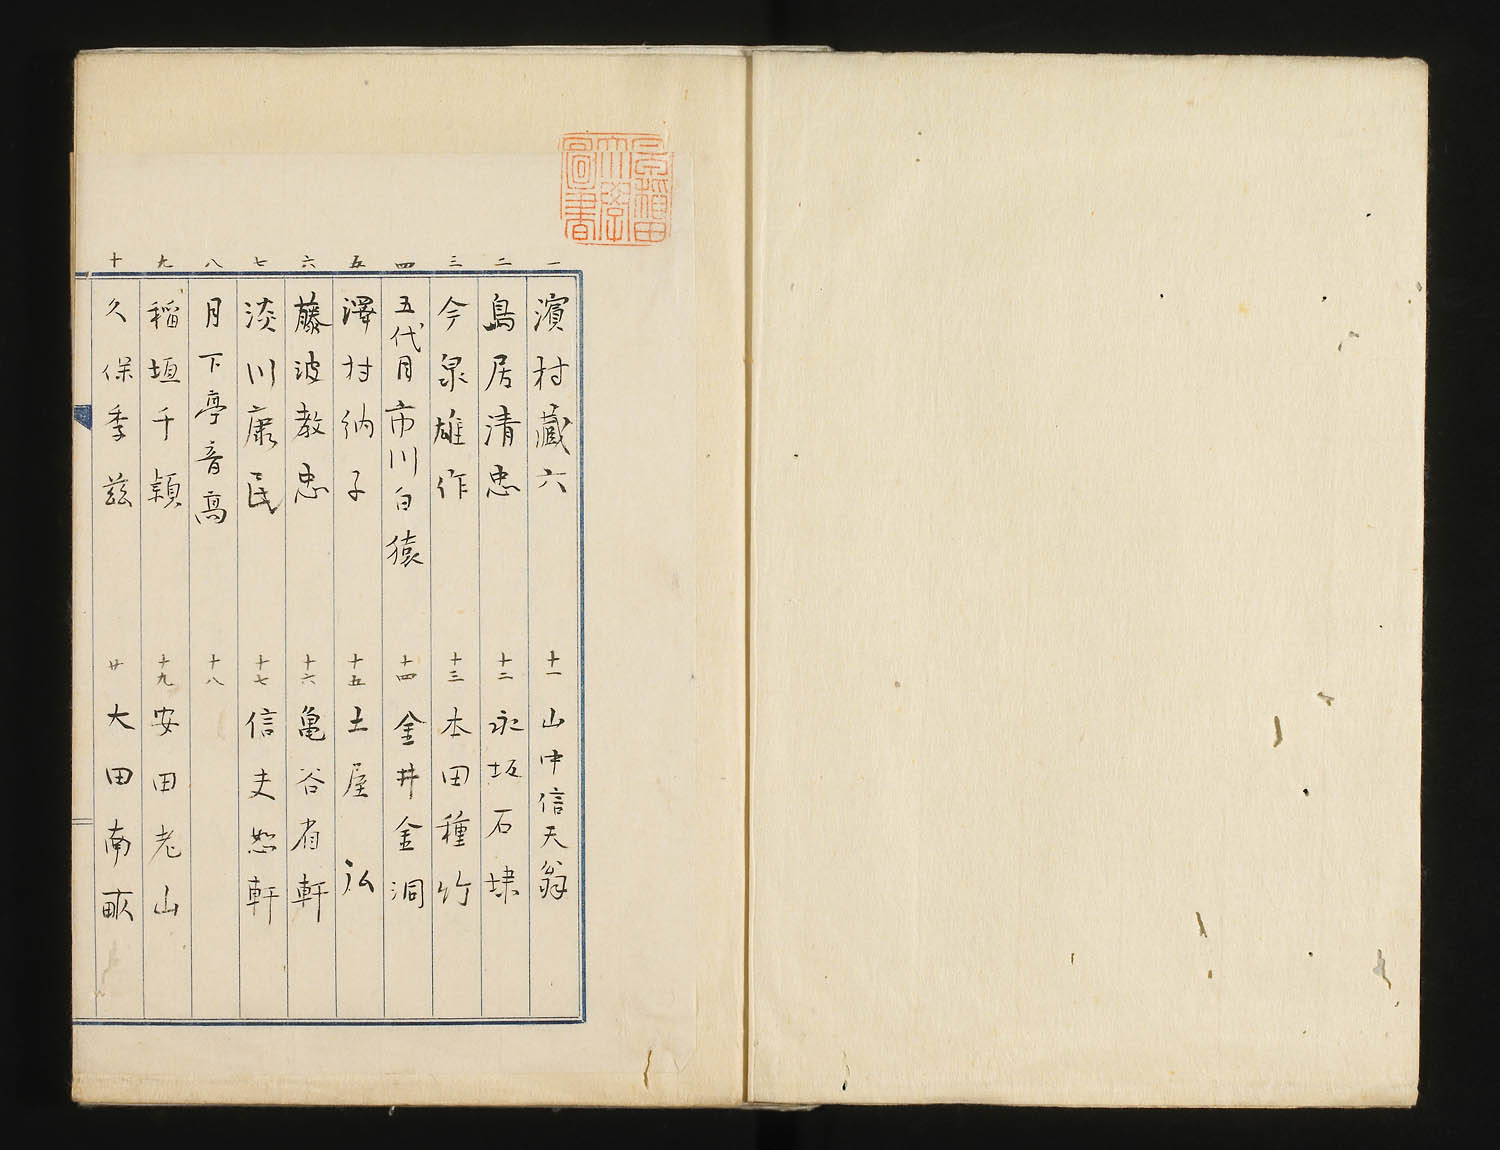 早稲田
大學
圖書
一 濱村蔵六
二 鳥居清忠
三 今泉雄作
四 五代目市川白猿
五 澤村納子
六 藤波教忠
七 淡川康民
八 月下亭音高
九 稲垣千穎
十 久保季茲
十一 山中信天翁
十二 永坂石埭
十三 本田種竹
十四 金井金洞
十五 土屋弘
十六 亀谷省軒
十七 信夫恕軒
十八
十九 安田老山
廿 大田南畝